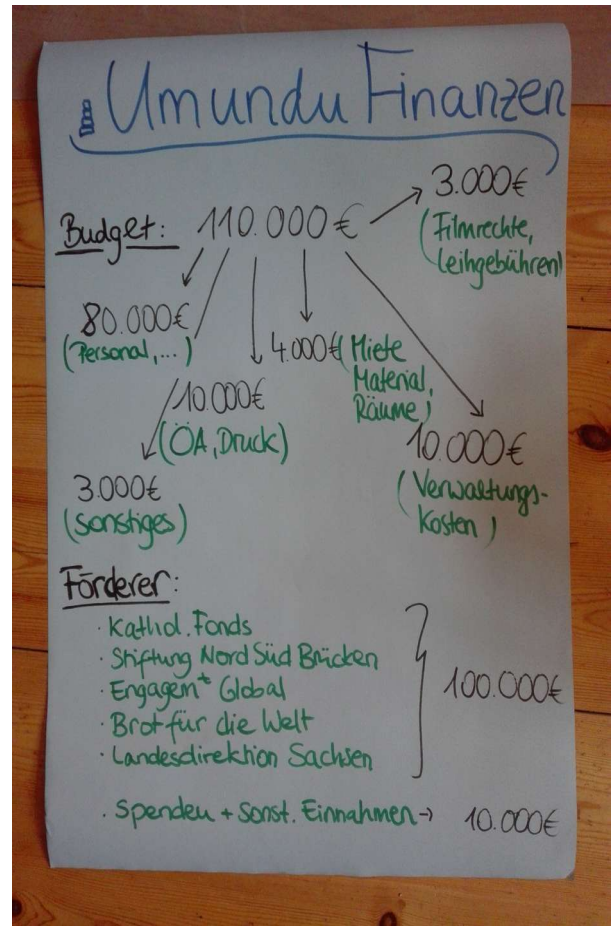 Umundu Finanzen
Budget: 110.000€
3.000€
(Filmrechte,
Leihgebühren)
80.000€
(Personal,...)
4.000€ (Miete
Material,
Räume)
10.000€
(ÖA, Druck)
10.000€
(Verwaltungs-
Kosten)
3.000€
(sonstiges)
Förderer:
· Kathol. Fonds
· Stiftung Nord Süd Brücken
· Engagemt Global
· Brot für die Welt
· Landesdirektion Sachsen
100.000€
· Spenden + Sonst. Einnahmen → 10.000€